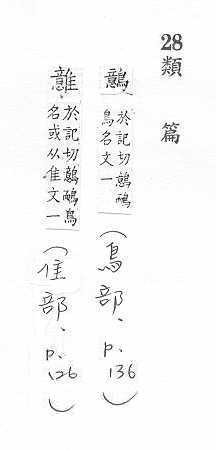 28
類篇
鷾 於記切鷾鴯
鳥名文一
(鳥部、p.136)
於記切鷾鴯鳥
名或从隹文一
(隹部、p.126)